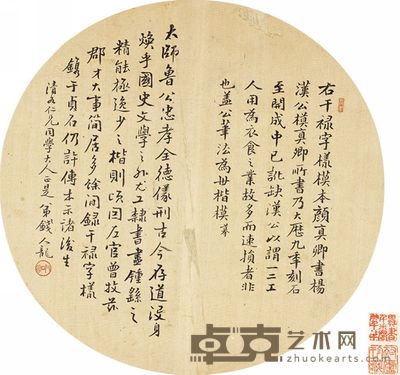 右干禄字样模本颜真卿书杨
漢公模真卿所書乃大歴九年刻石
至開成中已訛缺漢公以謂一二工
人用為衣食之業故多而速損者非
也盖公筆法為世楷模
太師魯公忠孝全德儀刑古今存道没身
焕乎國史文學之外尤工隸書書鍾繇之
精能極逸少之楷則頃因左官曾牧兹
郡才大事簡居多餘閒録干禄字樣
鎸于貞石仍許傳本示諸後生
仁兄同學大人正是 弟錢人龍
卓克艺术网
zhuokearts.com